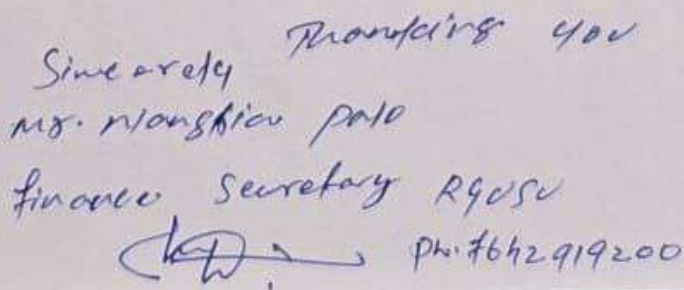 Thanking you
Sincerely
Mr. Niangbia Palo
finance Secretary RGUSU
Ph: 7642919200